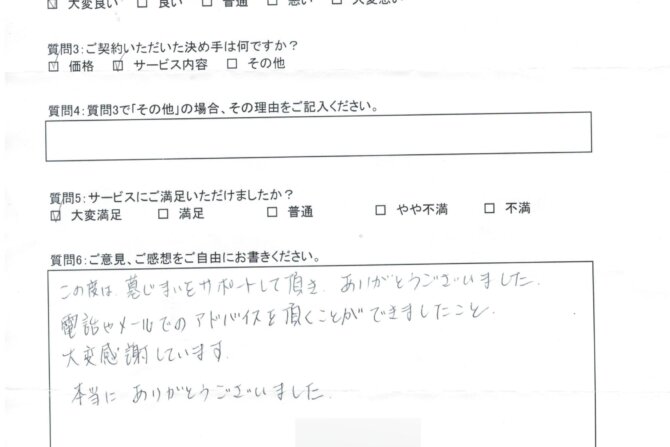 ☑ 大変良い □ 良い □ 普通 □ 悪い □ 大変悪い
質問3:ご契約いただいた決め手は何ですか?
☑ 価格 ☑ サービス内容 □ その他
質問4:質問3で「その他」の場合、その理由をご記入ください。
質問5:サービスにご満足いただけましたか?
☑ 大変満足 □ 満足 □ 普通 □ やや不満 □ 不満
質問6:ご意見、ご感想をご自由にお書きください。
この度は、墓じまいをサポートして頂き、ありがとうございました。
電話やメールでのアドバイスを頂くことができましたこと、
大変感謝しています。
本当に ありがとうございました。